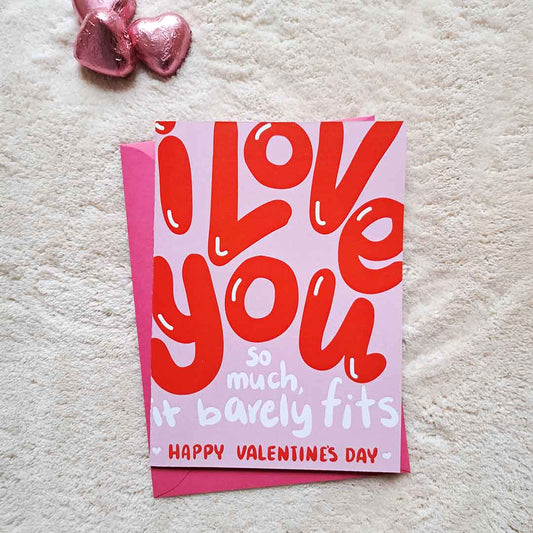 i LOVe
you
so
much,
it barely fits
HAPPY VALENTINE'S DAY